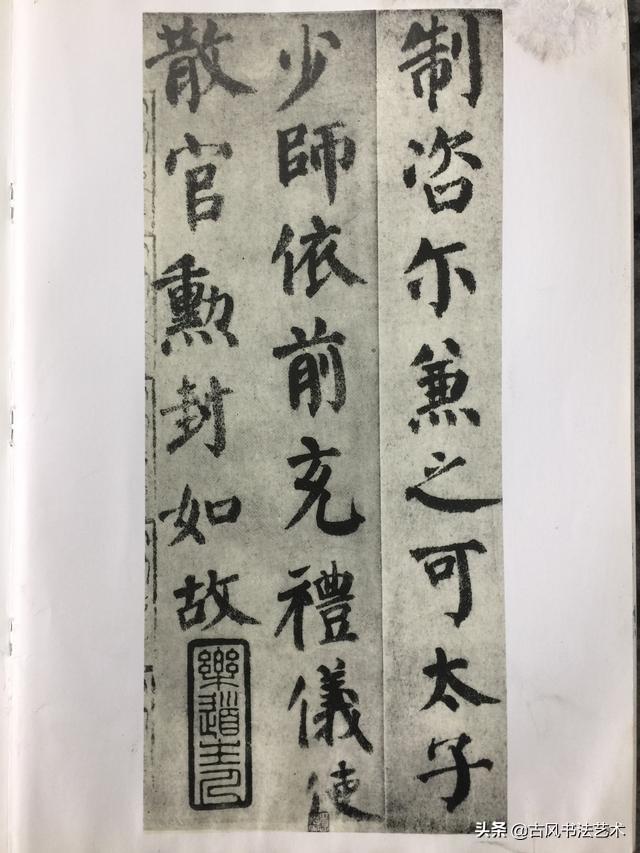 制咨尔兼之可太子
少師依前充禮儀使
散官勲封如故
樂道主人
头条 @古风书法艺术